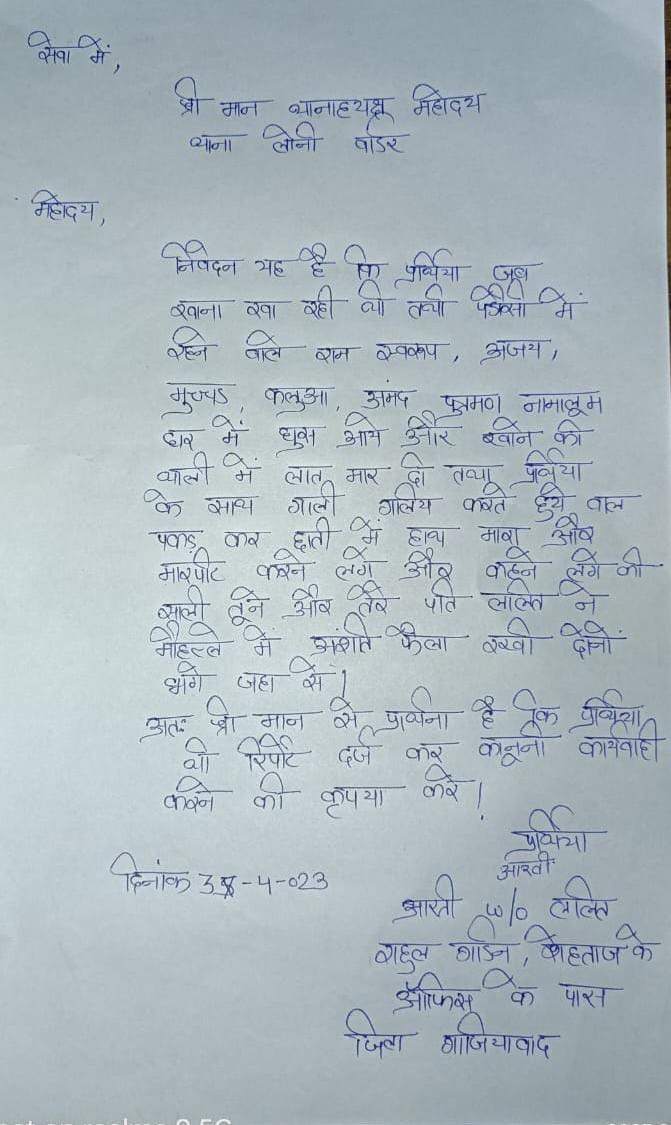 सेवा में,
श्री मान थानाध्यक्ष महोदय
थाना लोनी वार्डर
महोदय,
निवेदन यह है कि प्रर्थिया जब
खाना खा रही थी तथी पडोसी में
रहने वाले राम स्वरूप, अजय,
मुच्चड, कलुआ, आनंद पुत्रगण नामालूम
घर में घुस आये और खाने की
थाली में लात मार दी तथा प्रर्थिया
के साथ गाली गलोच करते हुये वाल
पकड़ कर छाती में हाथ मारा और
मारपीट करने लगे और कहने लगे की
साली तूने और तेरे पति ललित ने
मौहल्ले में अशांति फैला रखी दोनों
भागे जहा से।
अतः श्री मान से प्रार्थना है कि प्रर्थिया
की रिर्पोट दर्ज कर कानूनी कार्यवाही
करने की कृपया करे।
प्रर्थिया
आरती
दिनांक 3-4-023
आरती w/o ललित
राहुल गार्डन, रोहताज के
ऑफिस के पास
जिला गाजियावाद